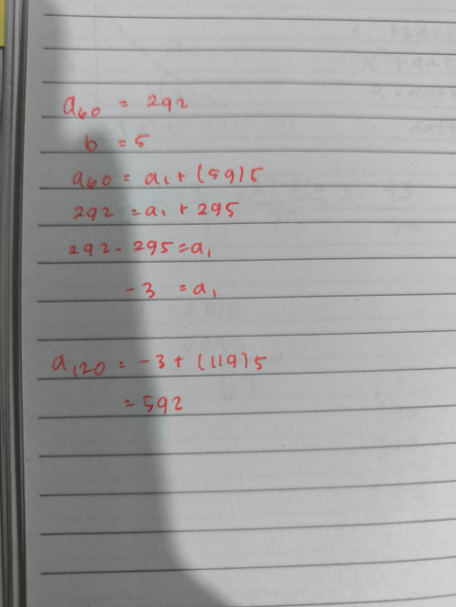 a₆₀ = 292
b = 5
a₆₀ = a₁ + (59)5
292 = a₁ + 295
292 - 295 = a₁
-3 = a₁
a₁₂₀ = -3 + (119)5
= 592